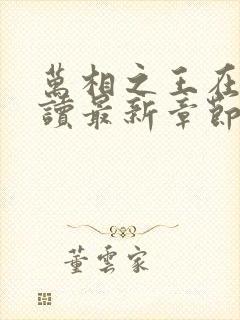 萬相之王在
讀最新章節
董雲家